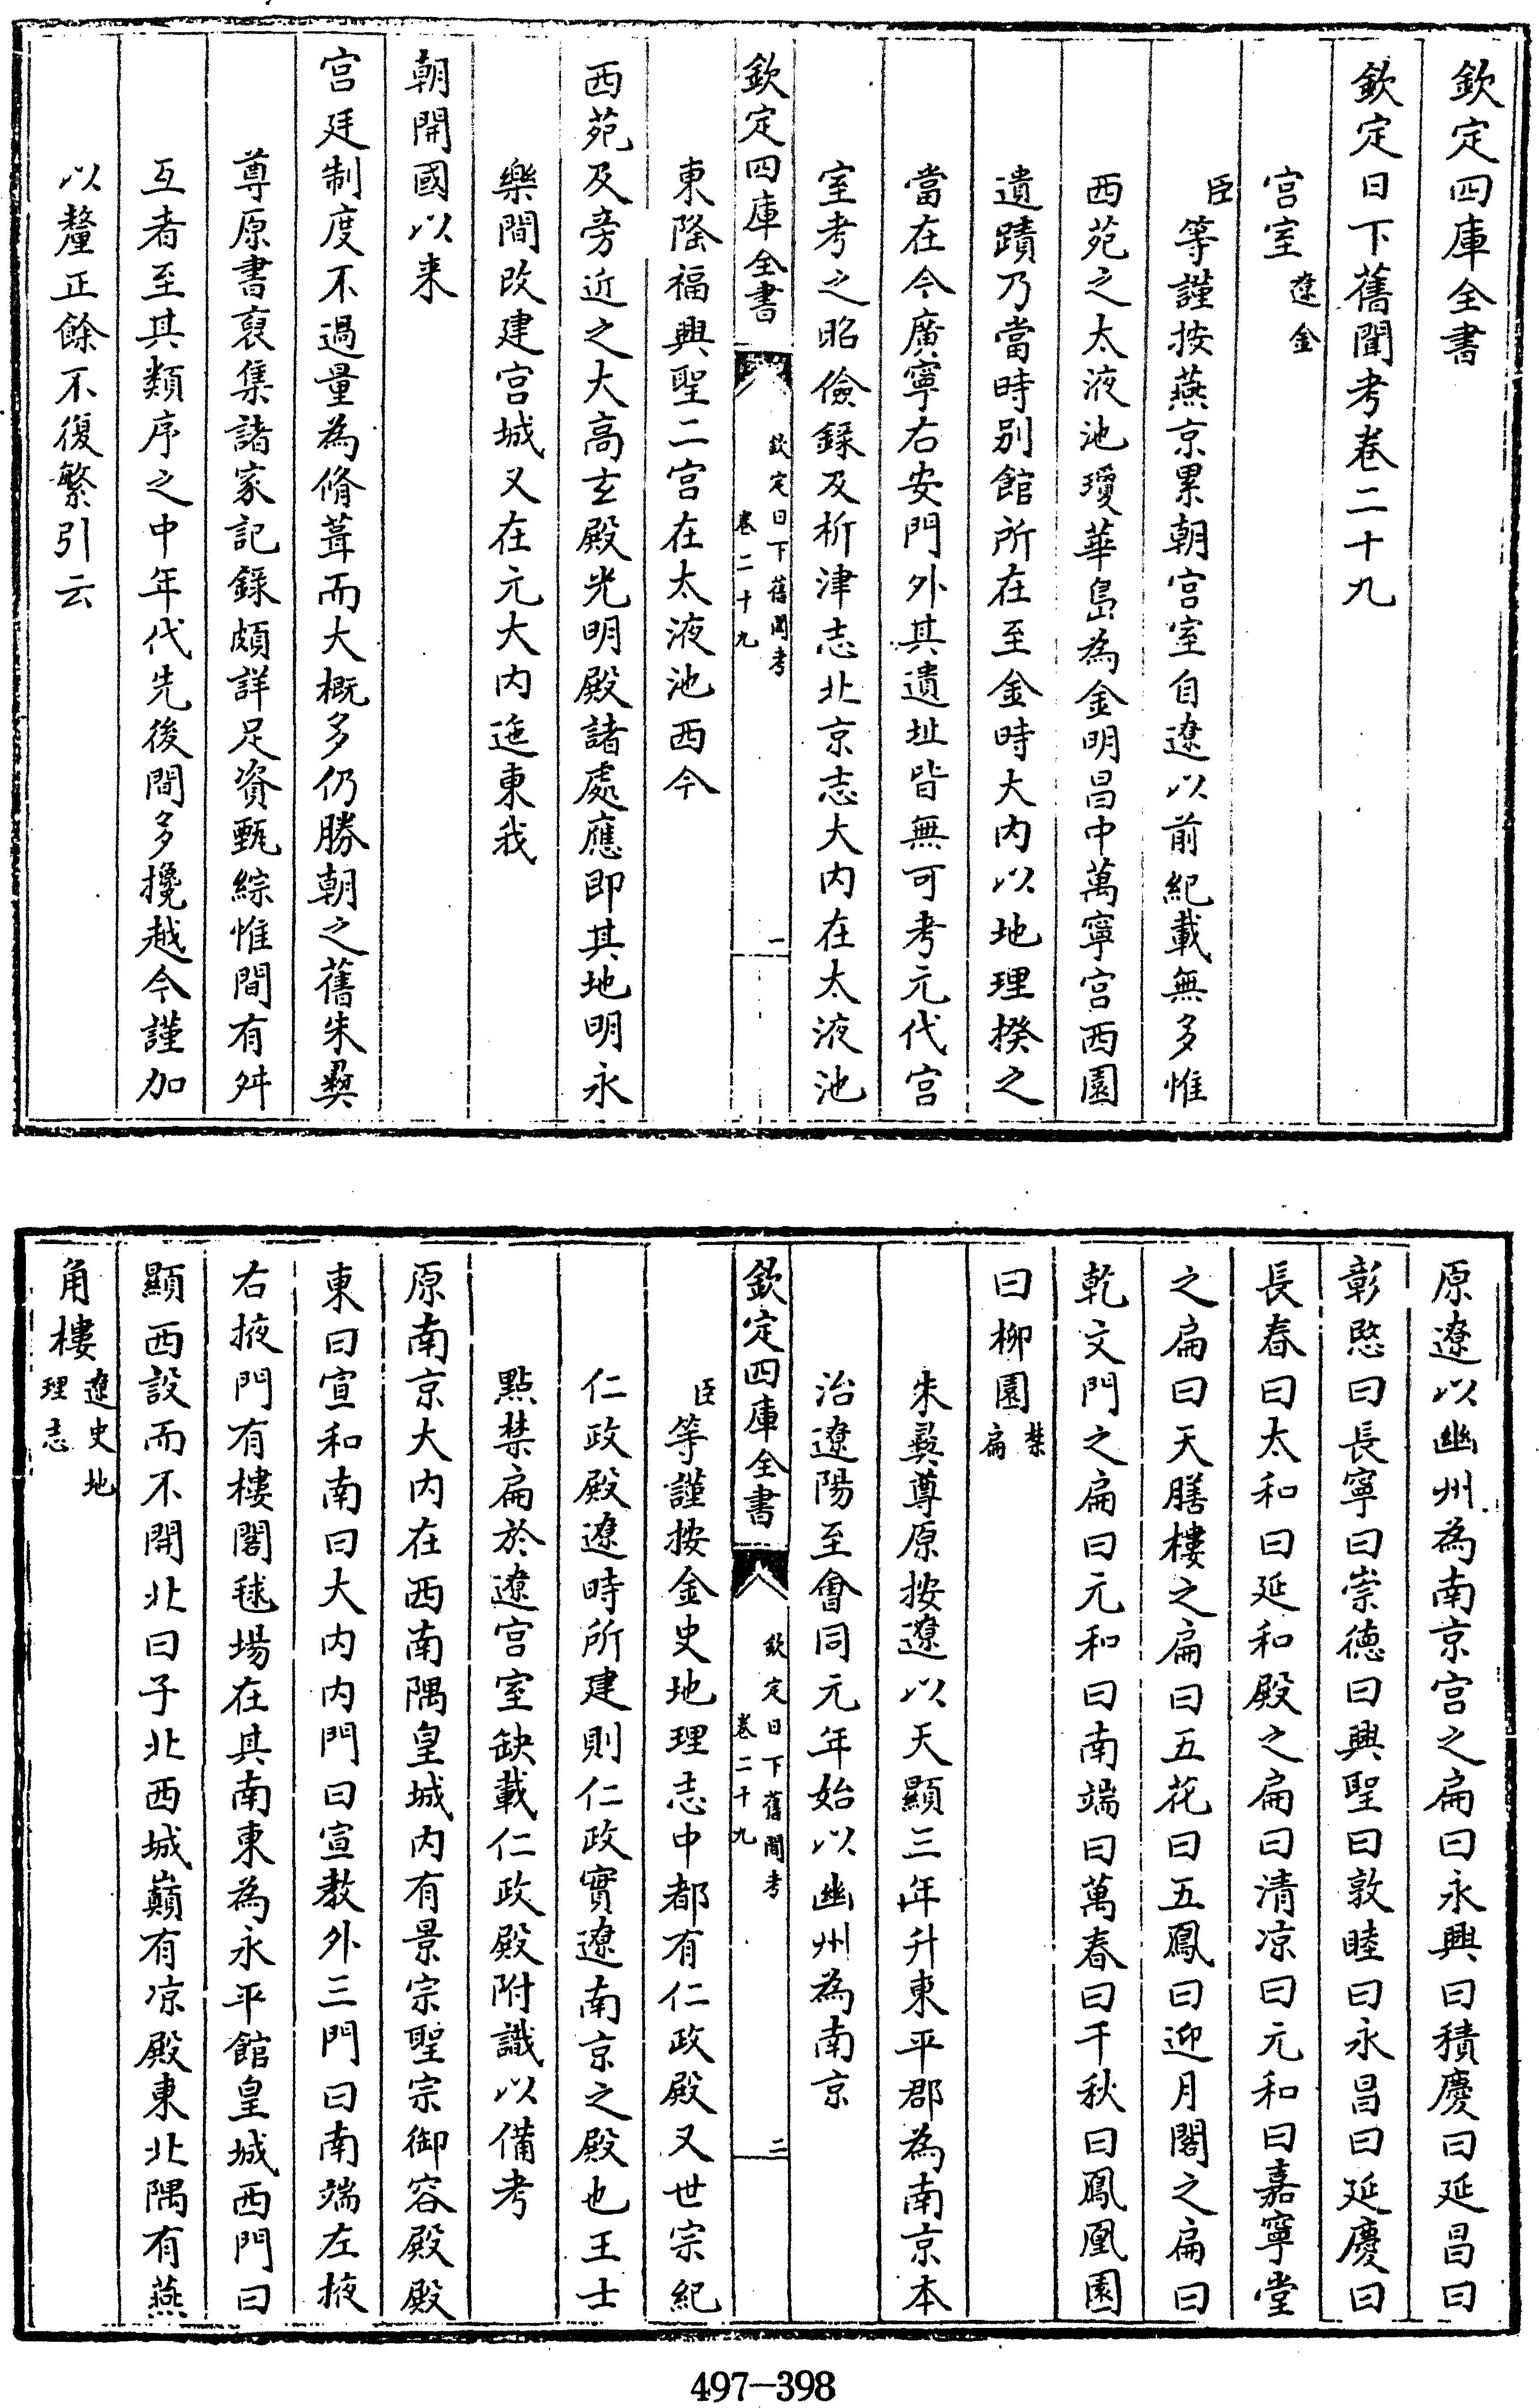 欽定四庫全書
欽定日下舊聞考卷二十九
宫室遼金
臣等謹按燕京累朝宫室自遼以前紀載無多惟
西苑之太液池瓊華島為金明昌中萬寧宫西園
遺蹟乃當時别館所在至金時大内以地理揆之
當在今廣寧右安門外其遺址皆無可考元代宫
室考之昭儉録及析津志北京志大内在太液池
欽定四庫全書
欽定日下舊聞考
卷二十九
一
東隆福興聖二宫在太液池西今
西苑及旁近之大高玄殿光明殿諸處應即其地明永
樂間改建宫城又在元大内迤東我
朝開國以来
宫廷制度不過量為脩葺而大概多仍勝朝之舊朱彛
尊原書裒集諸家記録頗詳足資甄綜惟間有舛
互者至其類序之中年代先後間多攙越今謹加
以釐正餘不復繁引云
原遼以幽州為南京宫之扁曰永興曰積慶曰延昌曰
彰愍曰長寧曰崇徳曰興聖曰敦睦曰永昌曰延慶曰
長春曰太和曰延和殿之扁曰清凉曰元和曰嘉寧堂
之扁曰天膳樓之扁曰五花曰五鳳曰迎月閣之扁曰
乾文門之扁曰元和曰南端曰萬春曰千秋曰鳳凰園
曰柳園禁扁
朱彛尊原按遼以天顯三年升東平郡為南京本
治遼陽至會同元年始以幽州為南京
欽定四庫全書
欽定日下舊聞考
卷二十九
二
臣等謹按金史地理志中都有仁政殿又世宗紀
仁政殿遼時所建則仁政實遼南京之殿也王士
點禁扁於遼宫室缺載仁政殿附識以備考
原南京大内在西南隅皇城内有景宗聖宗御容殿殿
東曰宣和南曰大内内門曰宣教外三門曰南端左掖
右掖門有樓閣毬場在其南東為永平館皇城西門曰
顯西設而不開北曰子北西城巔有凉殿東北隅有燕
角樓遼史地理志
497—398